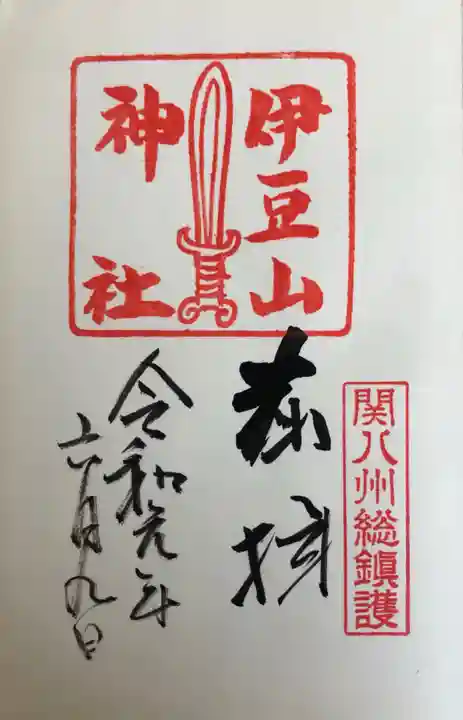 伊豆山
神社
関八州総鎮護
奉拝
令和元年
六月九日